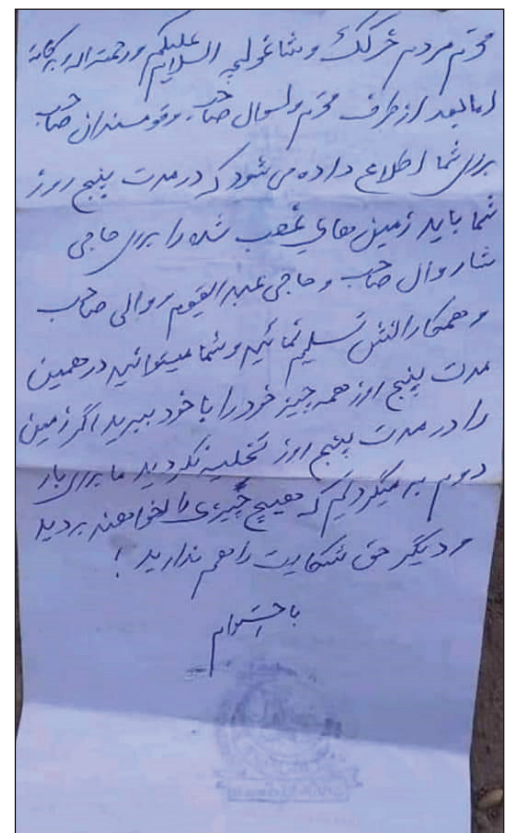 محترم مردم خرلک و شاغولچه السلام علیکم ورحمته اله وبرکاته
اما بعد از طرف محترم ولسوال صاحب وقومندان صاحب
برای شما اطلاع داده می شود که در مدت پنج روز
شما باید زمین های غصب شده را برای حاجی
شاروال صاحب و حاجی عبدالقیوم روالی صاحب
و همکارانش تسلیم نمائید و شما میتوانید در همین
مدت پنج روز همه چیز خود را با خود ببرید اگر زمین
را در مدت پنج روز تخلیه نکردید ما برای بار
دوم بر میگردیم که هیچ چیزی را نخواهند بردید
و دیگر حق شکایت را هم ندارید !
با احترام